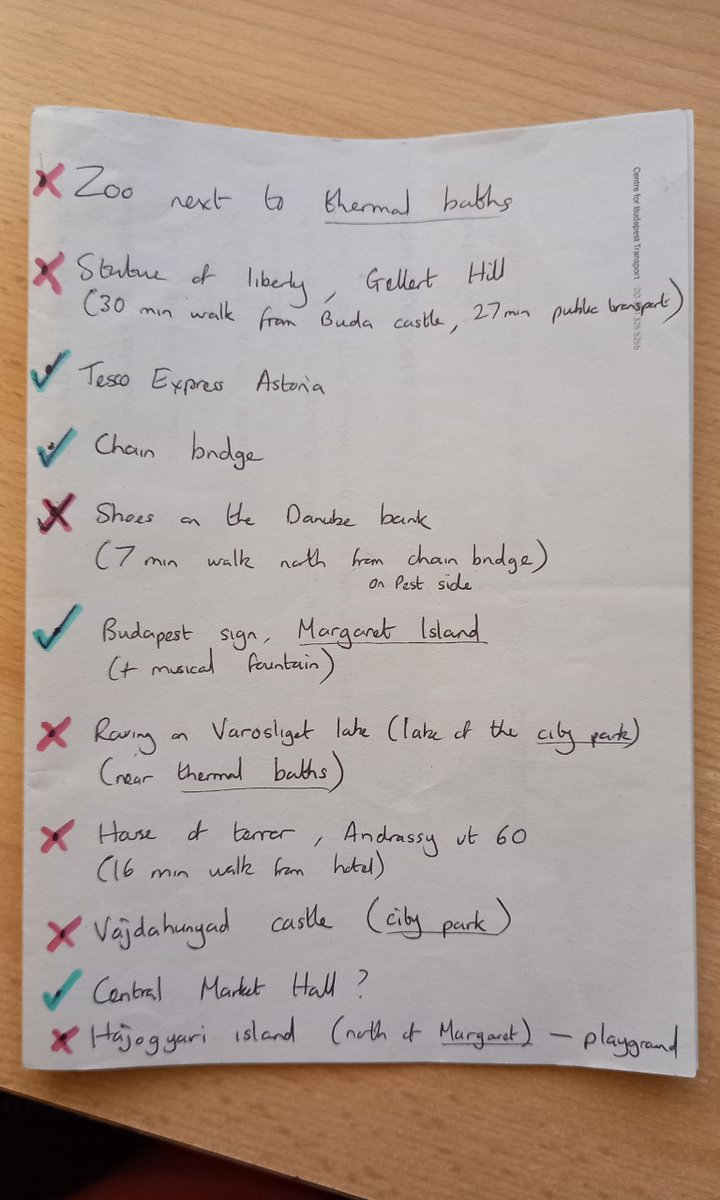 Zoo next to thermal baths
Statue of liberty, Gellert Hill
(30 min walk from Buda castle, 27min public transport)
Tesco Express Astoria
Chain bridge
Shoes on the Danube bank
(7 min walk north from chain bridge)
on Pest side
Budapest sign, Margaret Island
(+ musical fountain)
Rowing on Varosliget lake (lake of the city park)
(near thermal baths)
House of terror, Andrassy ut 60
(16 min walk from hotel)
Vajdahunyad castle (city park)
Central Market Hall?
Hajogyari island (north of Margaret) – playground
Centre for Budapest Transport